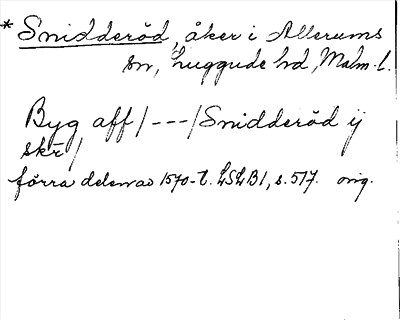 * Smidderöd, åker i Allerums
sn, Luggude hd, Malm. l.
Byg aff /---/ Smidderöd ij
skr /
förra delen av 1570-t. LSLB1, s. 517. orig.